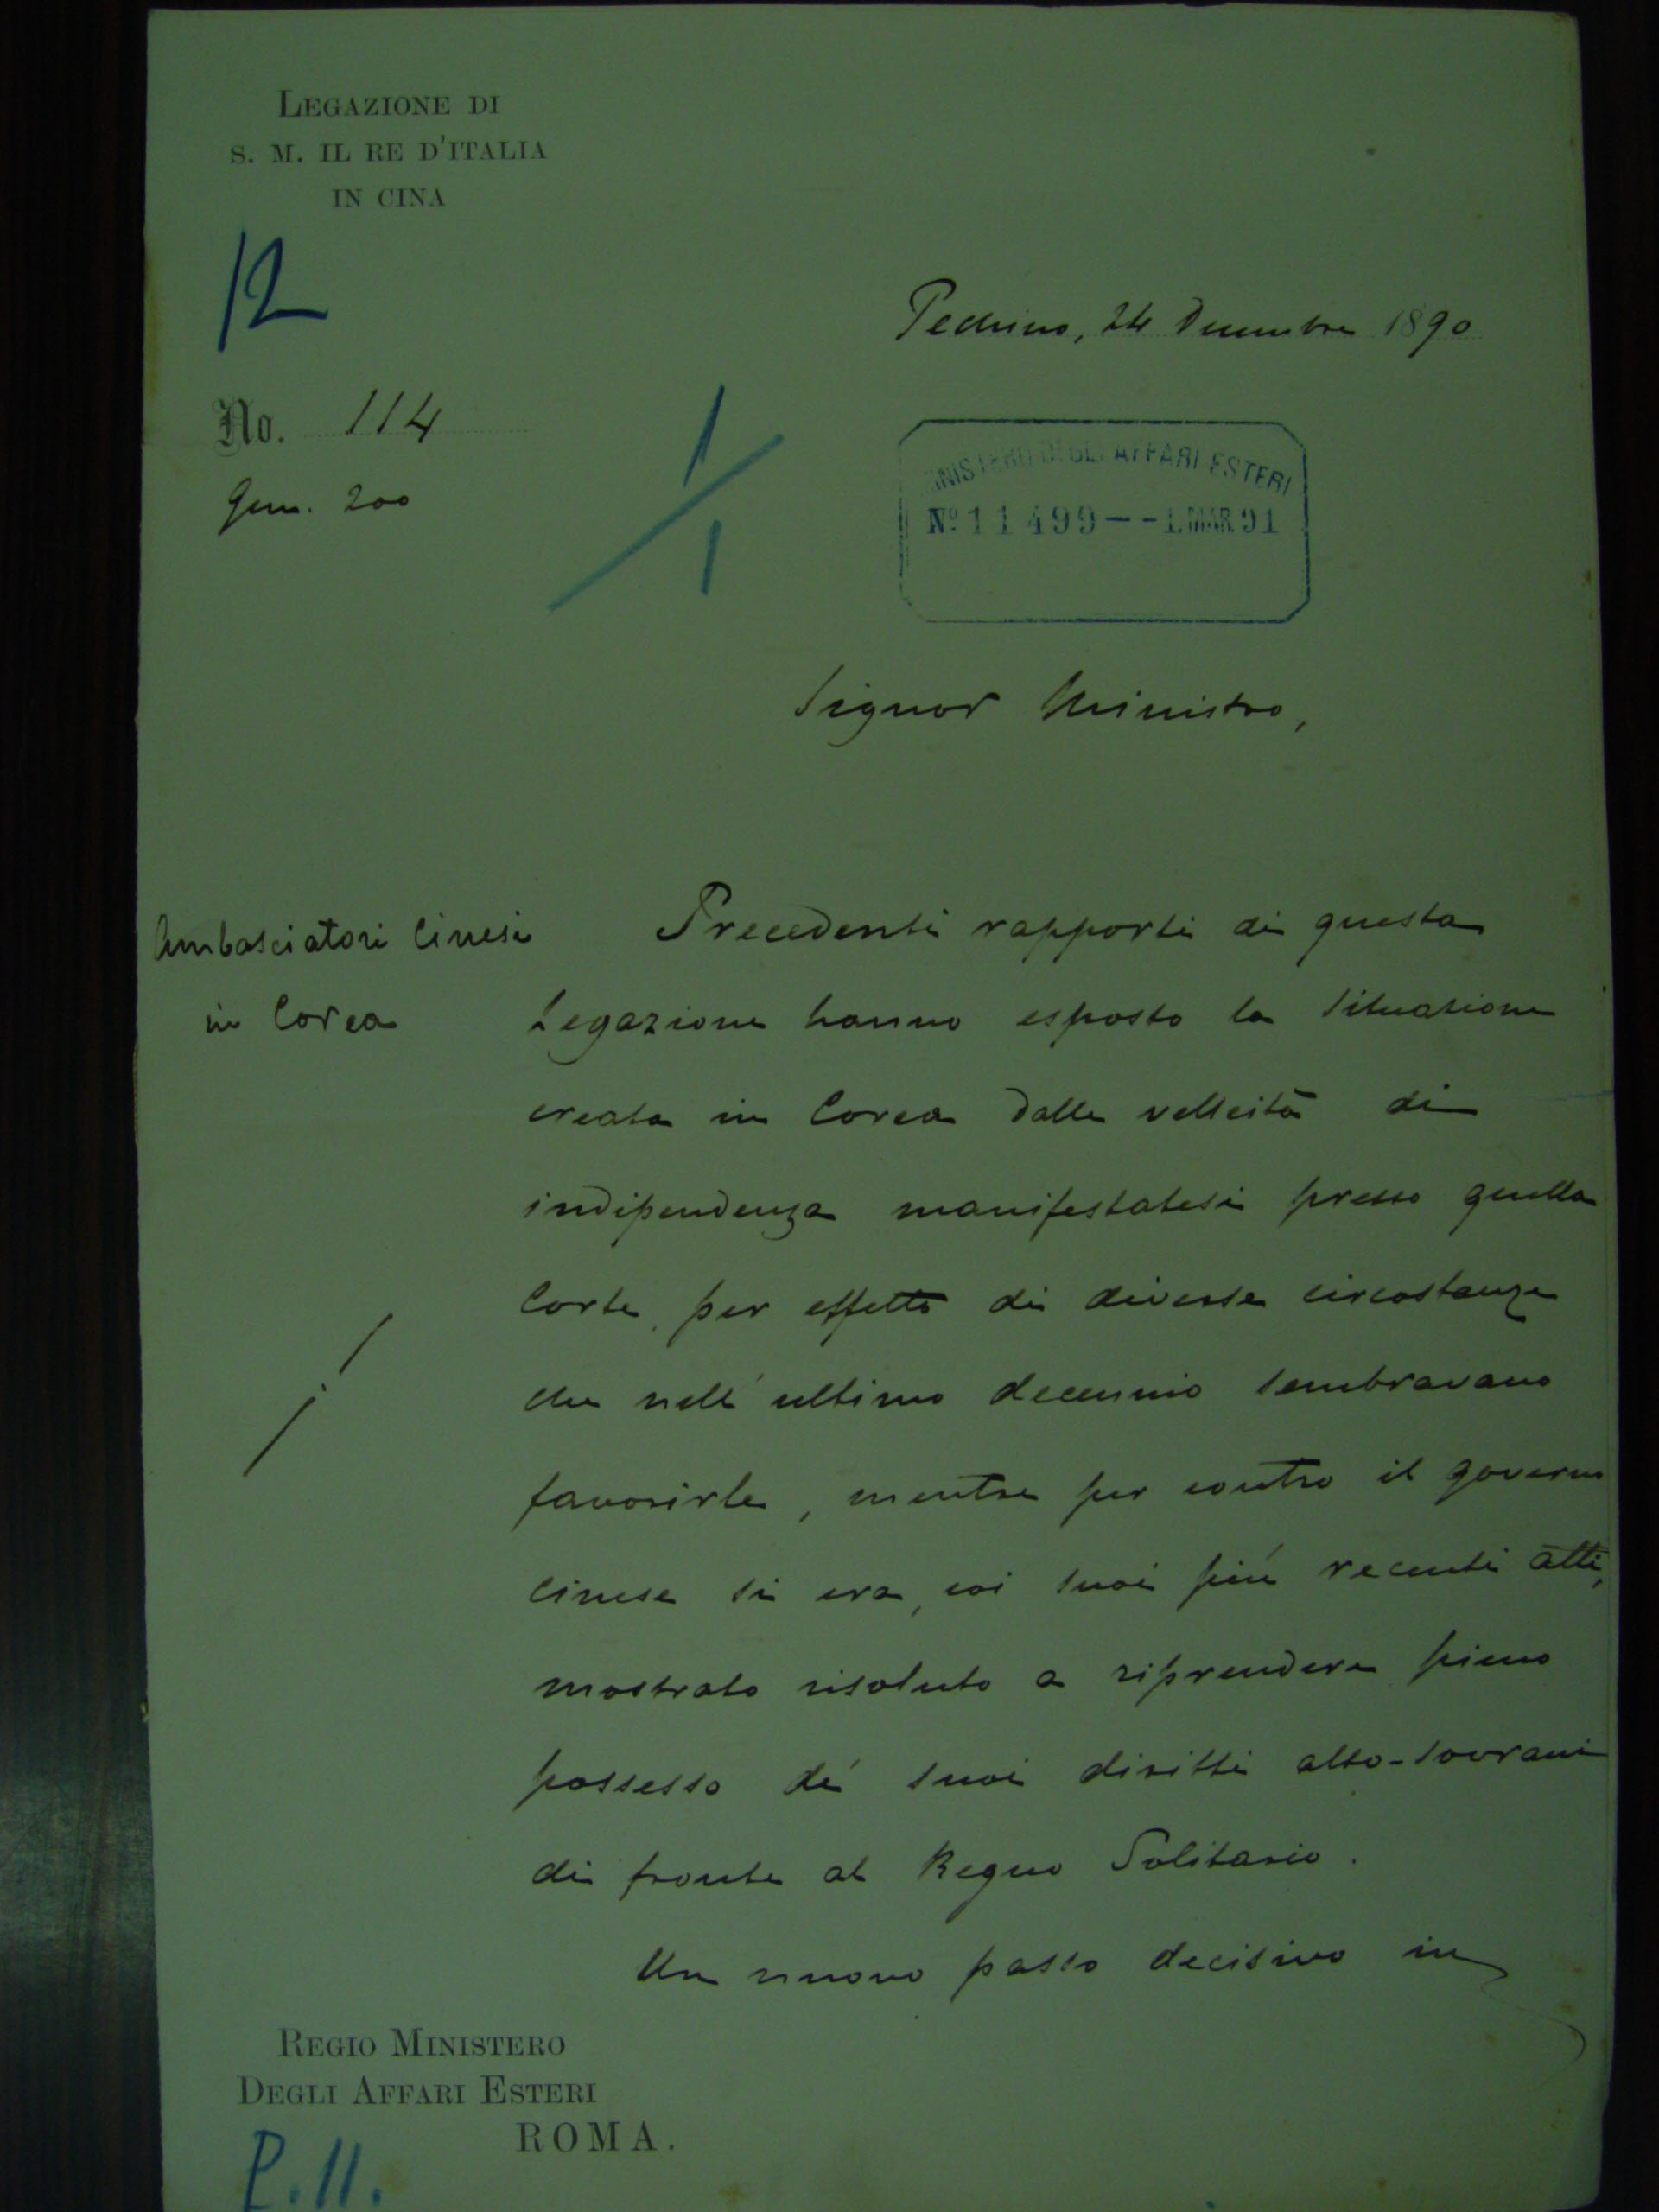 LEGAZIONE DI
S. M. IL RE D'ITALIA
IN CINA
12
Pechino, 24 Decembre 1890
No. 114
Gen. 200
1/1
MINISTERO DEGLI AFFARI ESTERI
Nº 11499 -- 1. MAR 91
Signor Ministro,
Ambasciatori Cinesi
in Corea
Precedenti rapporti di questa
Legazione hanno esposto la situazione
creata in Corea dalle velleità di
indipendenza manifestatesi presso quella
Corte, per effetto di diverse circostanze
che nell'ultimo decennio sembravano
favorirle, mentre per contro il governo
cinese si era, coi suoi più recenti atti,
mostrato risoluto a riprendere pieno
possesso de' suoi diritti alto-sovrani
di fronte al Regno Solitario.
Un nuovo passo decisivo in
REGIO MINISTERO
DEGLI AFFARI ESTERI
ROMA.
P. II.